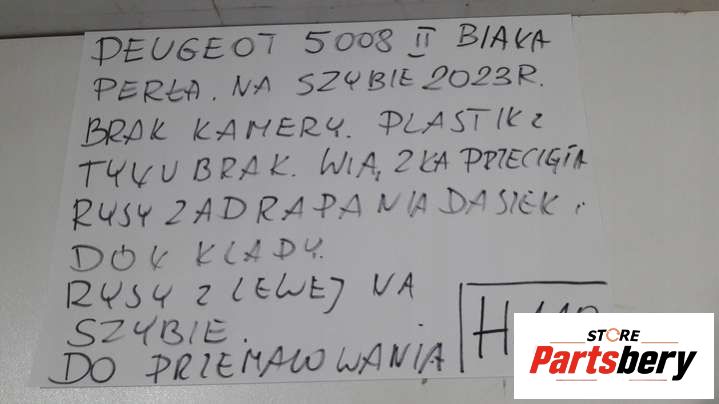 PEUGEOT 5008 II BIAŁA
PERŁA. NA SZYBIE 2023R.
BRAK KAMERY. PLASTIK Z
TYŁU BRAK. WIĄZKA PRZECIĘTA
RYSY ZADRAPANIA DASZEK i
DÓŁ KLAPY.
RYSY Z LEWEJ NA
SZYBIE.
DO PRZEMALOWANIA
STORE
Partsbery